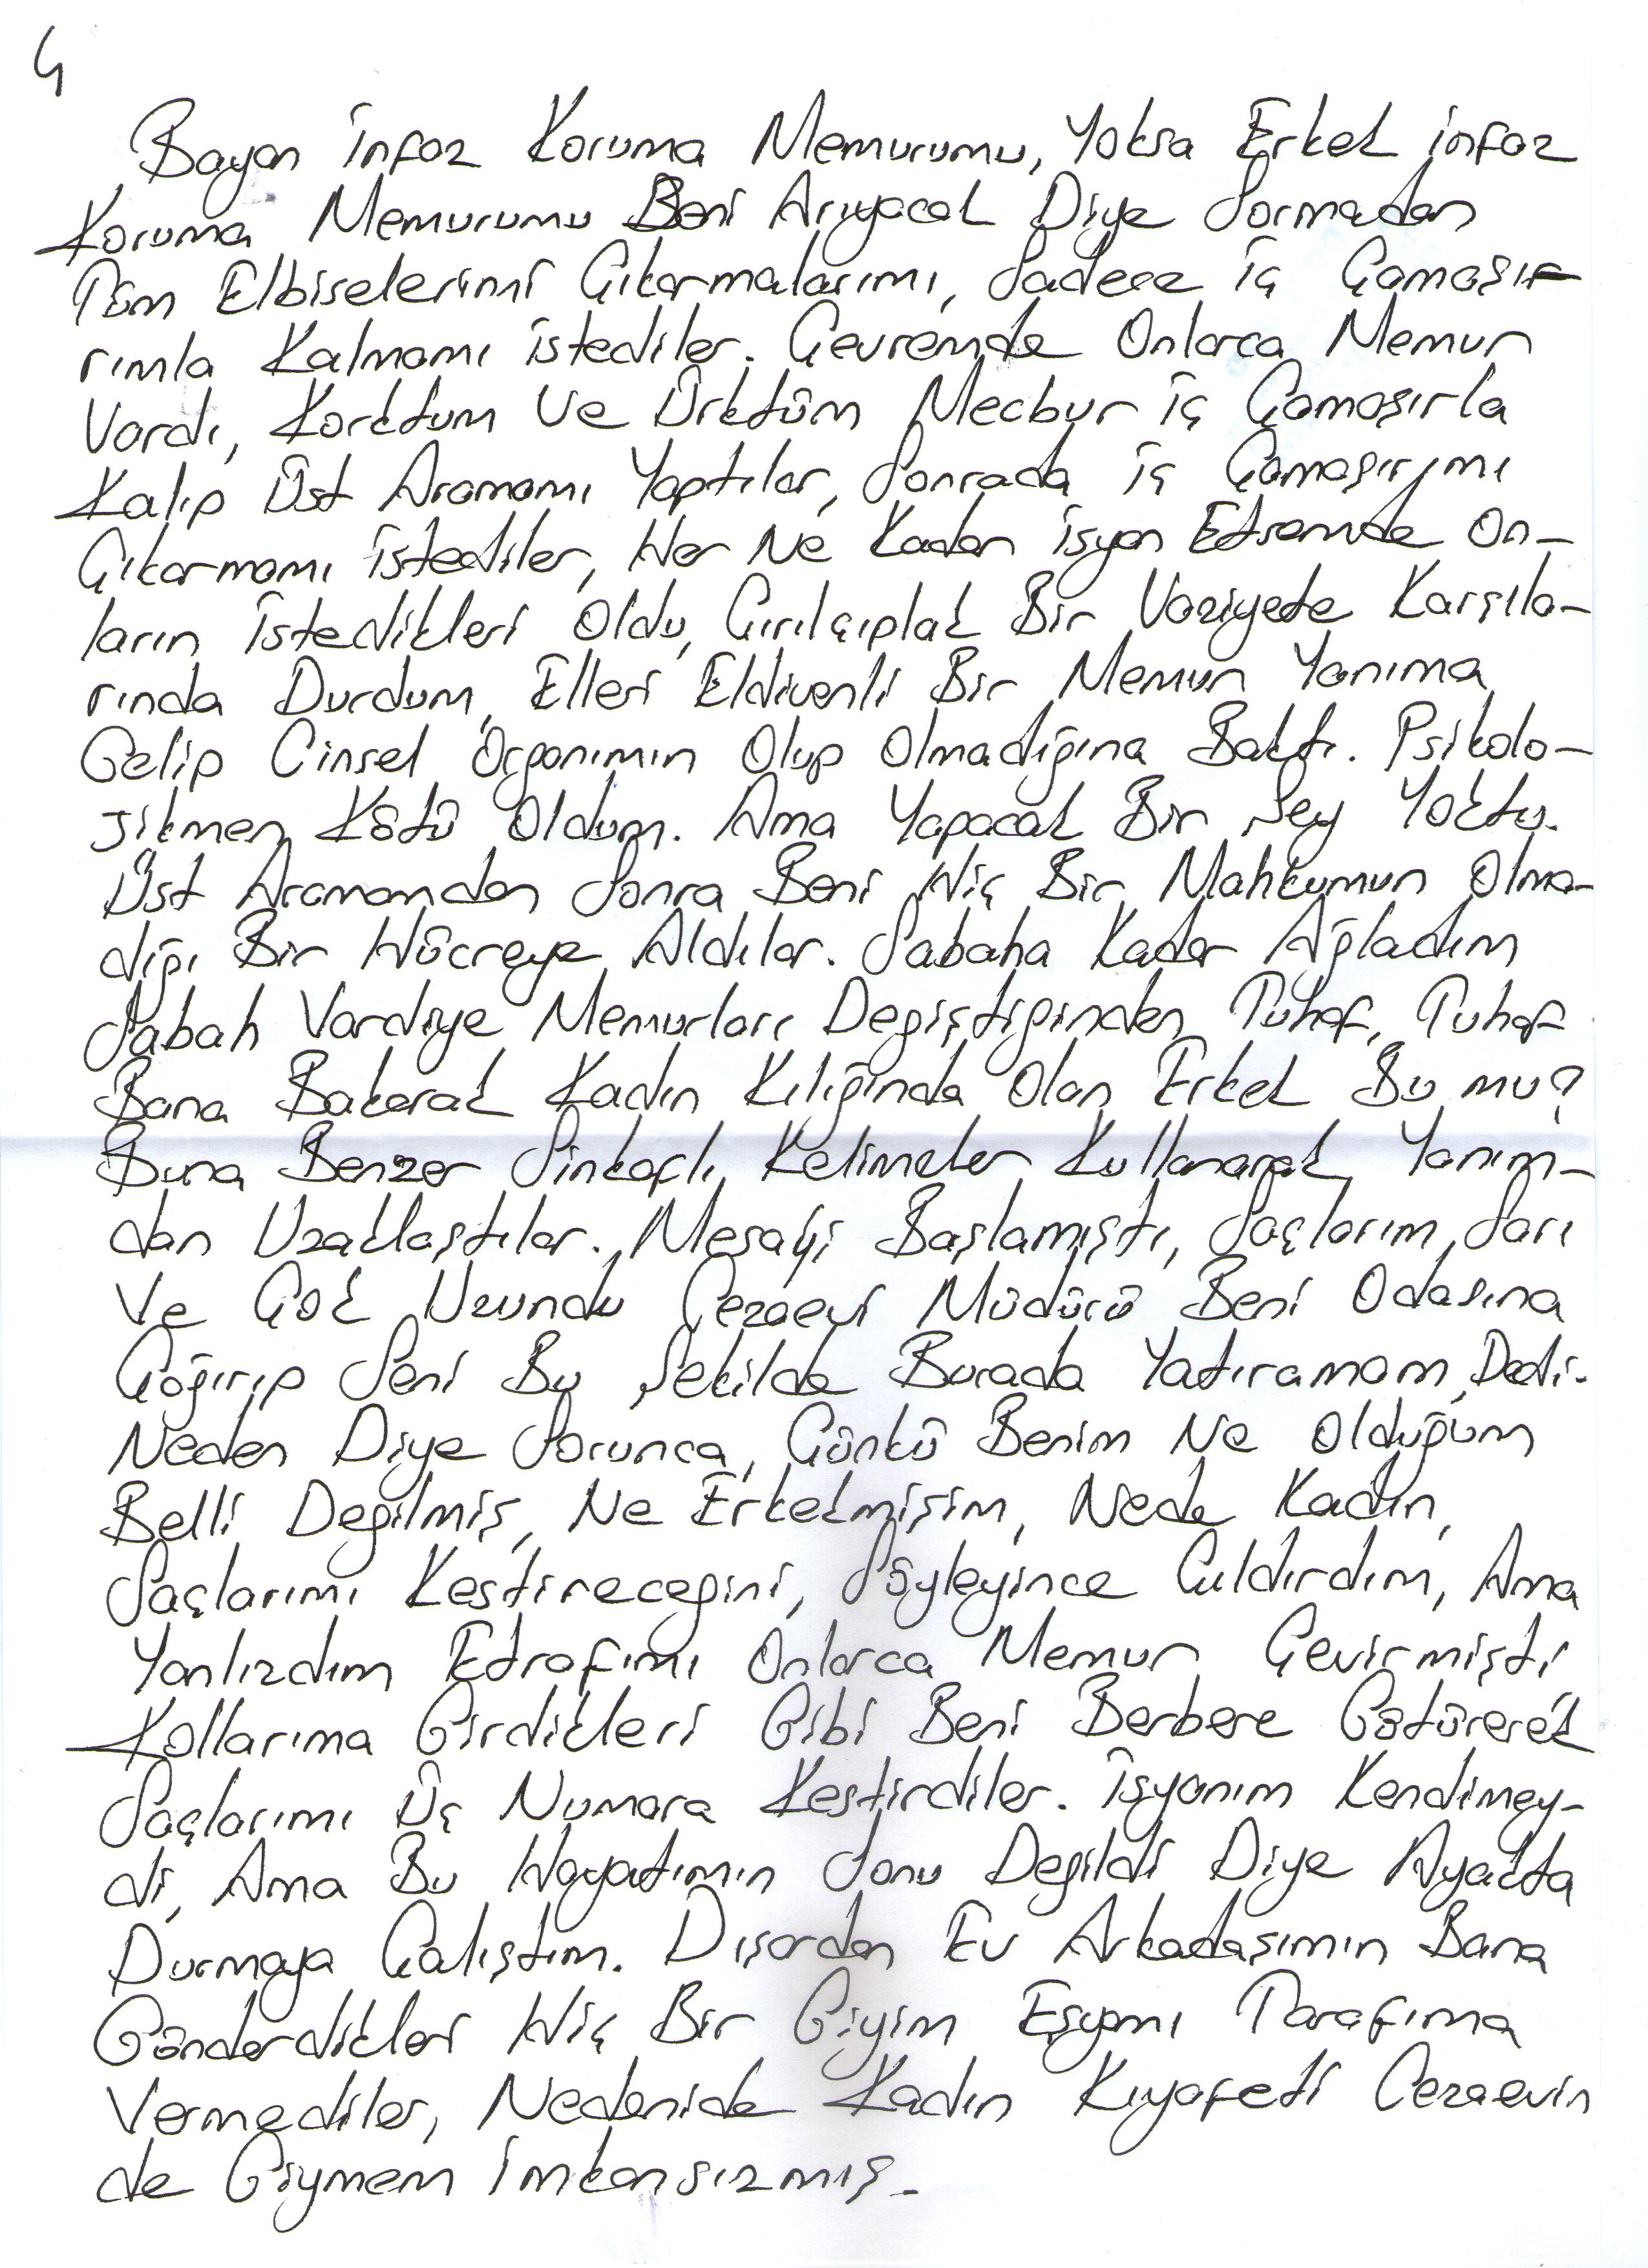 4
Bayan İnfaz Koruma Memurumu, Yoksa Erkek infaz
Koruma Memurumu Beni Arıyacak Diye Sormadan
Tüm Elbiselerimi Çıkarmalarımı, Sadece iç Çamaşır
rımla Kalmamı istediler. Çevremde Onlarca Memur
Vardı, Korktum Ve Ürktüm Mecbur iç Çamaşırla
Kalıp Üst Aramamı Yaptılar, Sonrada iç Çamaşırımı
Çıkarmamı istediler, Her Ne Kadar isyan Etsemde On-
ların istedikleri Oldu, Çırılçıplak Bir Vaziyete Karşıla-
rında Durdum, Elleri Eldivenli Bir Memur Yanıma
Gelip Cinsel Organımın Olup Olmadığına Baktı. Psikolo-
jikmen Kötü Oldum. Ama Yapacak Bir Şey Yoktu.
Üst Aramamdan Sonra Beni Hiç Bir Mahkumun Olma-
dığı Bir Hücreye Aldılar. Sabaha Kadar Ağladım
Sabah Vardiye Memurları Degiştiginden Tuhaf, Tuhaf
Bana Bakarak Kadın Kılığında Olan Erkek Bu mu?
Buna Benzer Sinkaflı Kelimeler Kullanarak Yanım-
dan Uzaklaştılar. Mesayi Başlamıştı, Saçlarım Sarı
Ve Çok Uzundu Cezaevi Müdürü Beni Odasına
Çağırıp Seni Bu Şekilde Burada Yatıramam Dedi.
Neden Diye Sorunca, Çünkü Benim Ne Olduğum
Belli Degilmiş, Ne Erkekmişim, Nede Kadın,
Saçlarımı Kestirecegini, Söyleyince Çıldırdım, Ama
Yanlızdım Etrafımı Onlarca Memur Çevirmişti
Kollarıma Girdikleri Gibi Beni Berbere Götürerek
Saçlarımı Üç Numara Kestirdiler. İsyanım Kendimey-
di, Ama Bu Hayatımın Sonu Degildi Diye Ayakta
Durmaya Çalıştım. Dışardan Ev Arkadaşımın Bana
Gönderdikleri Hiç Bir Giyim Eşyamı Tarafıma
Vermediler, Nedenide Kadın Kıyafeti Cezaevin
de Giymem İmkansızmış.